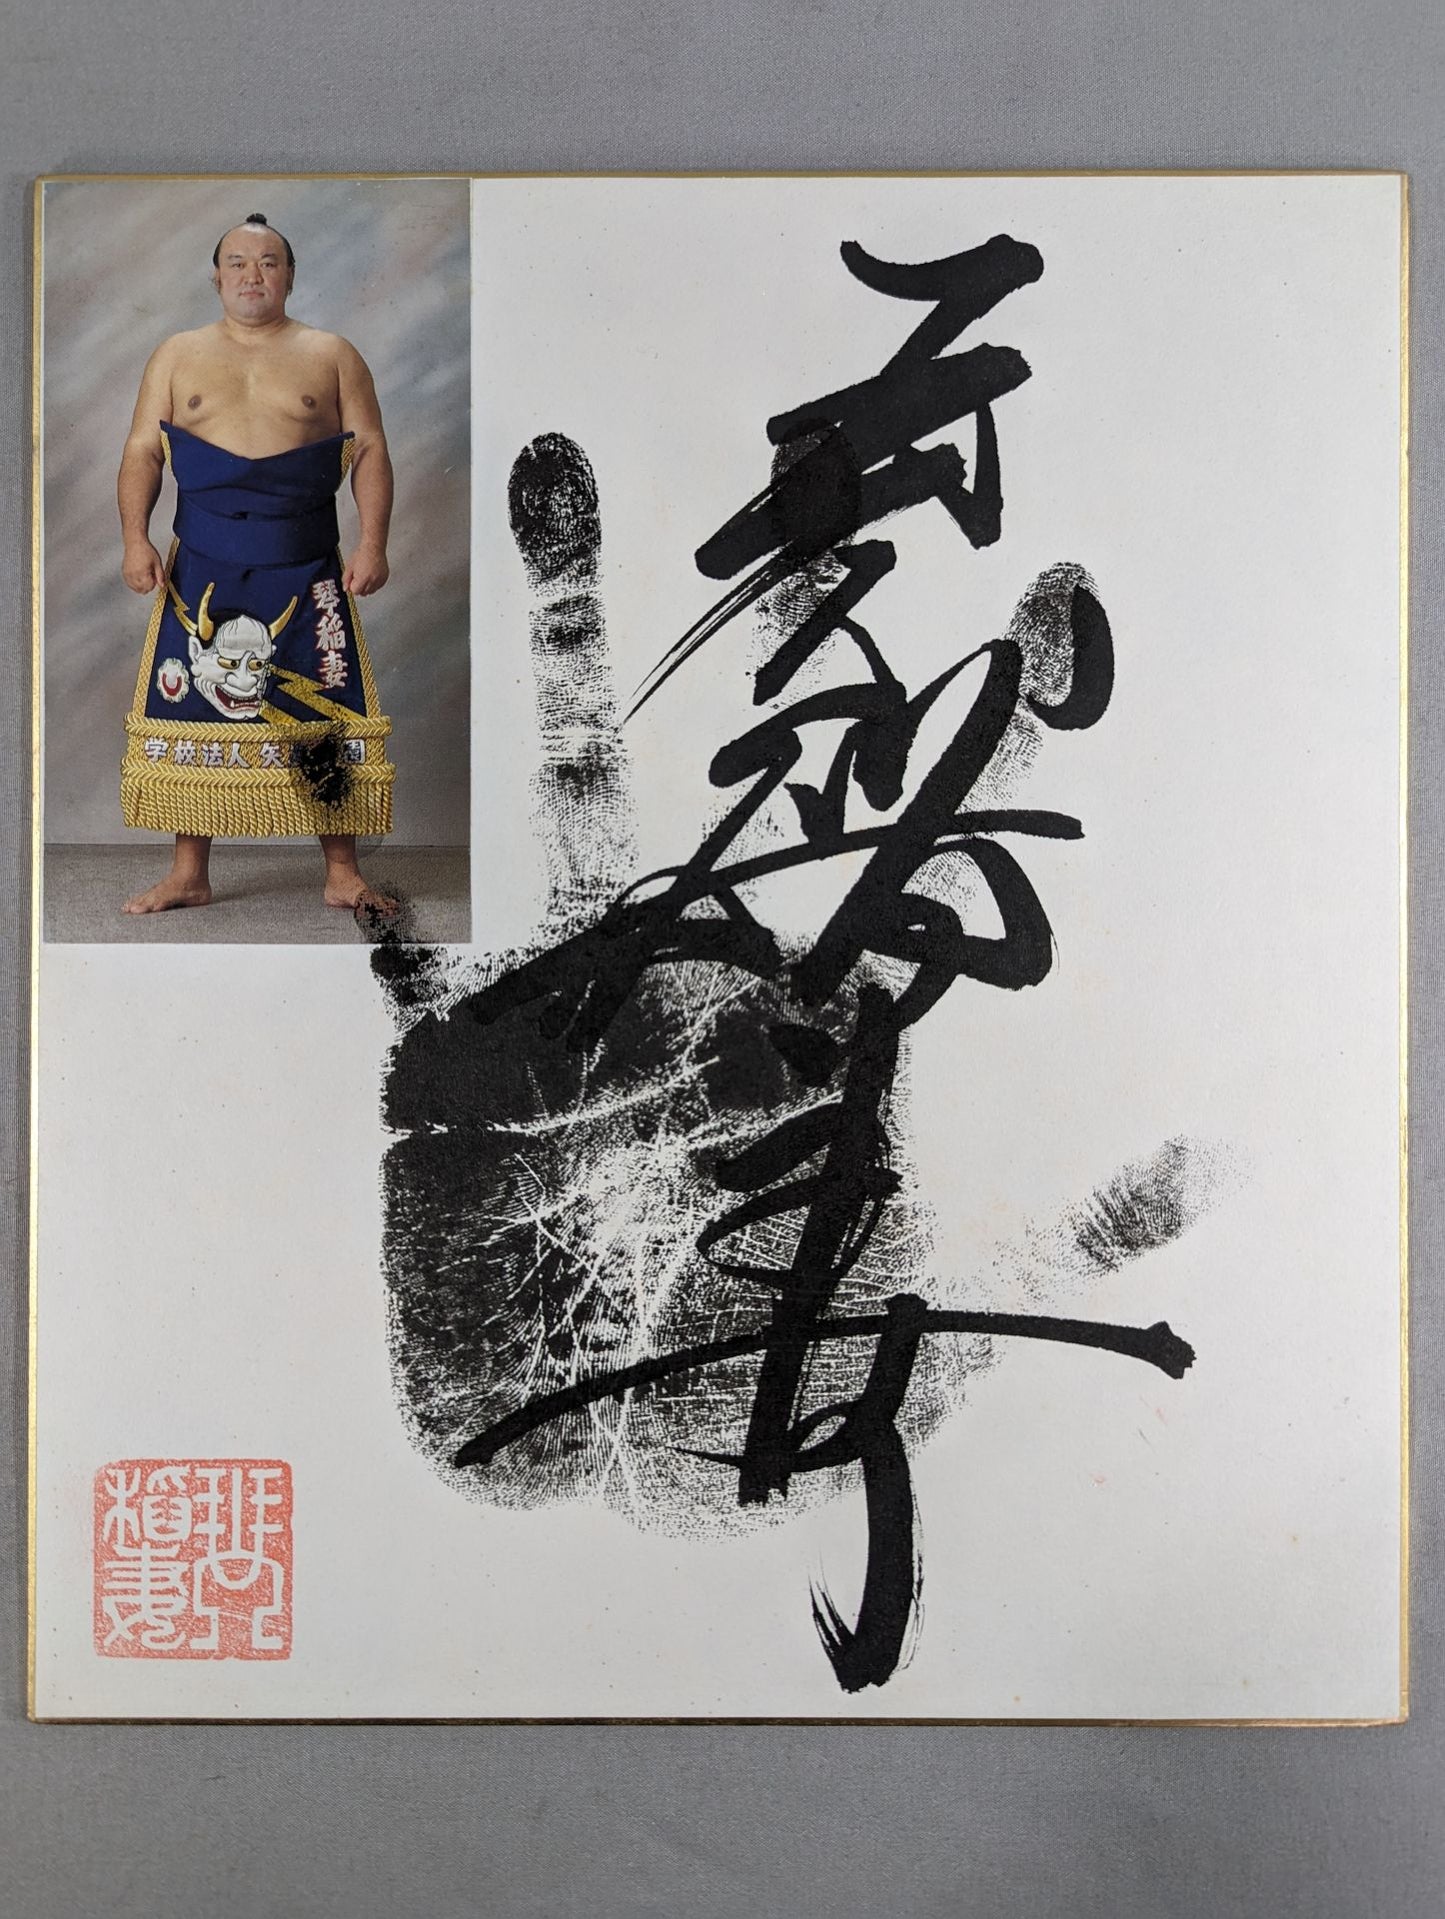 琴稲妻
学校法人 矢 園
琴稲妻
琴稲妻